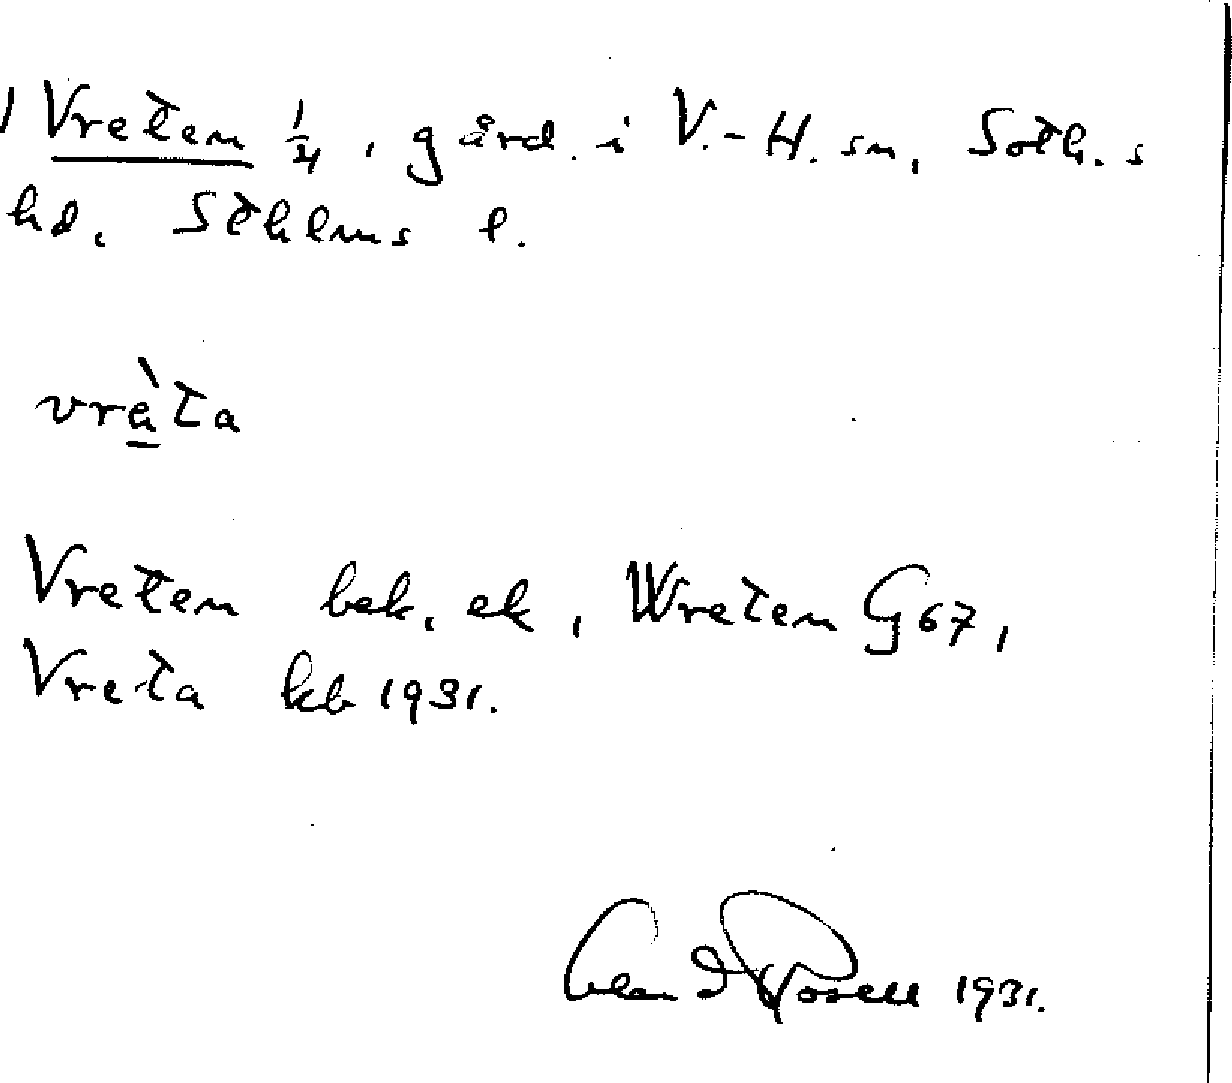 Vreten 1/4, gård i V.-H. sn, Soth.s
hd, Sthlms l.
vrèta
Vreten bek. ek, Wreten G67,
Vreta kb 1931.
1931.